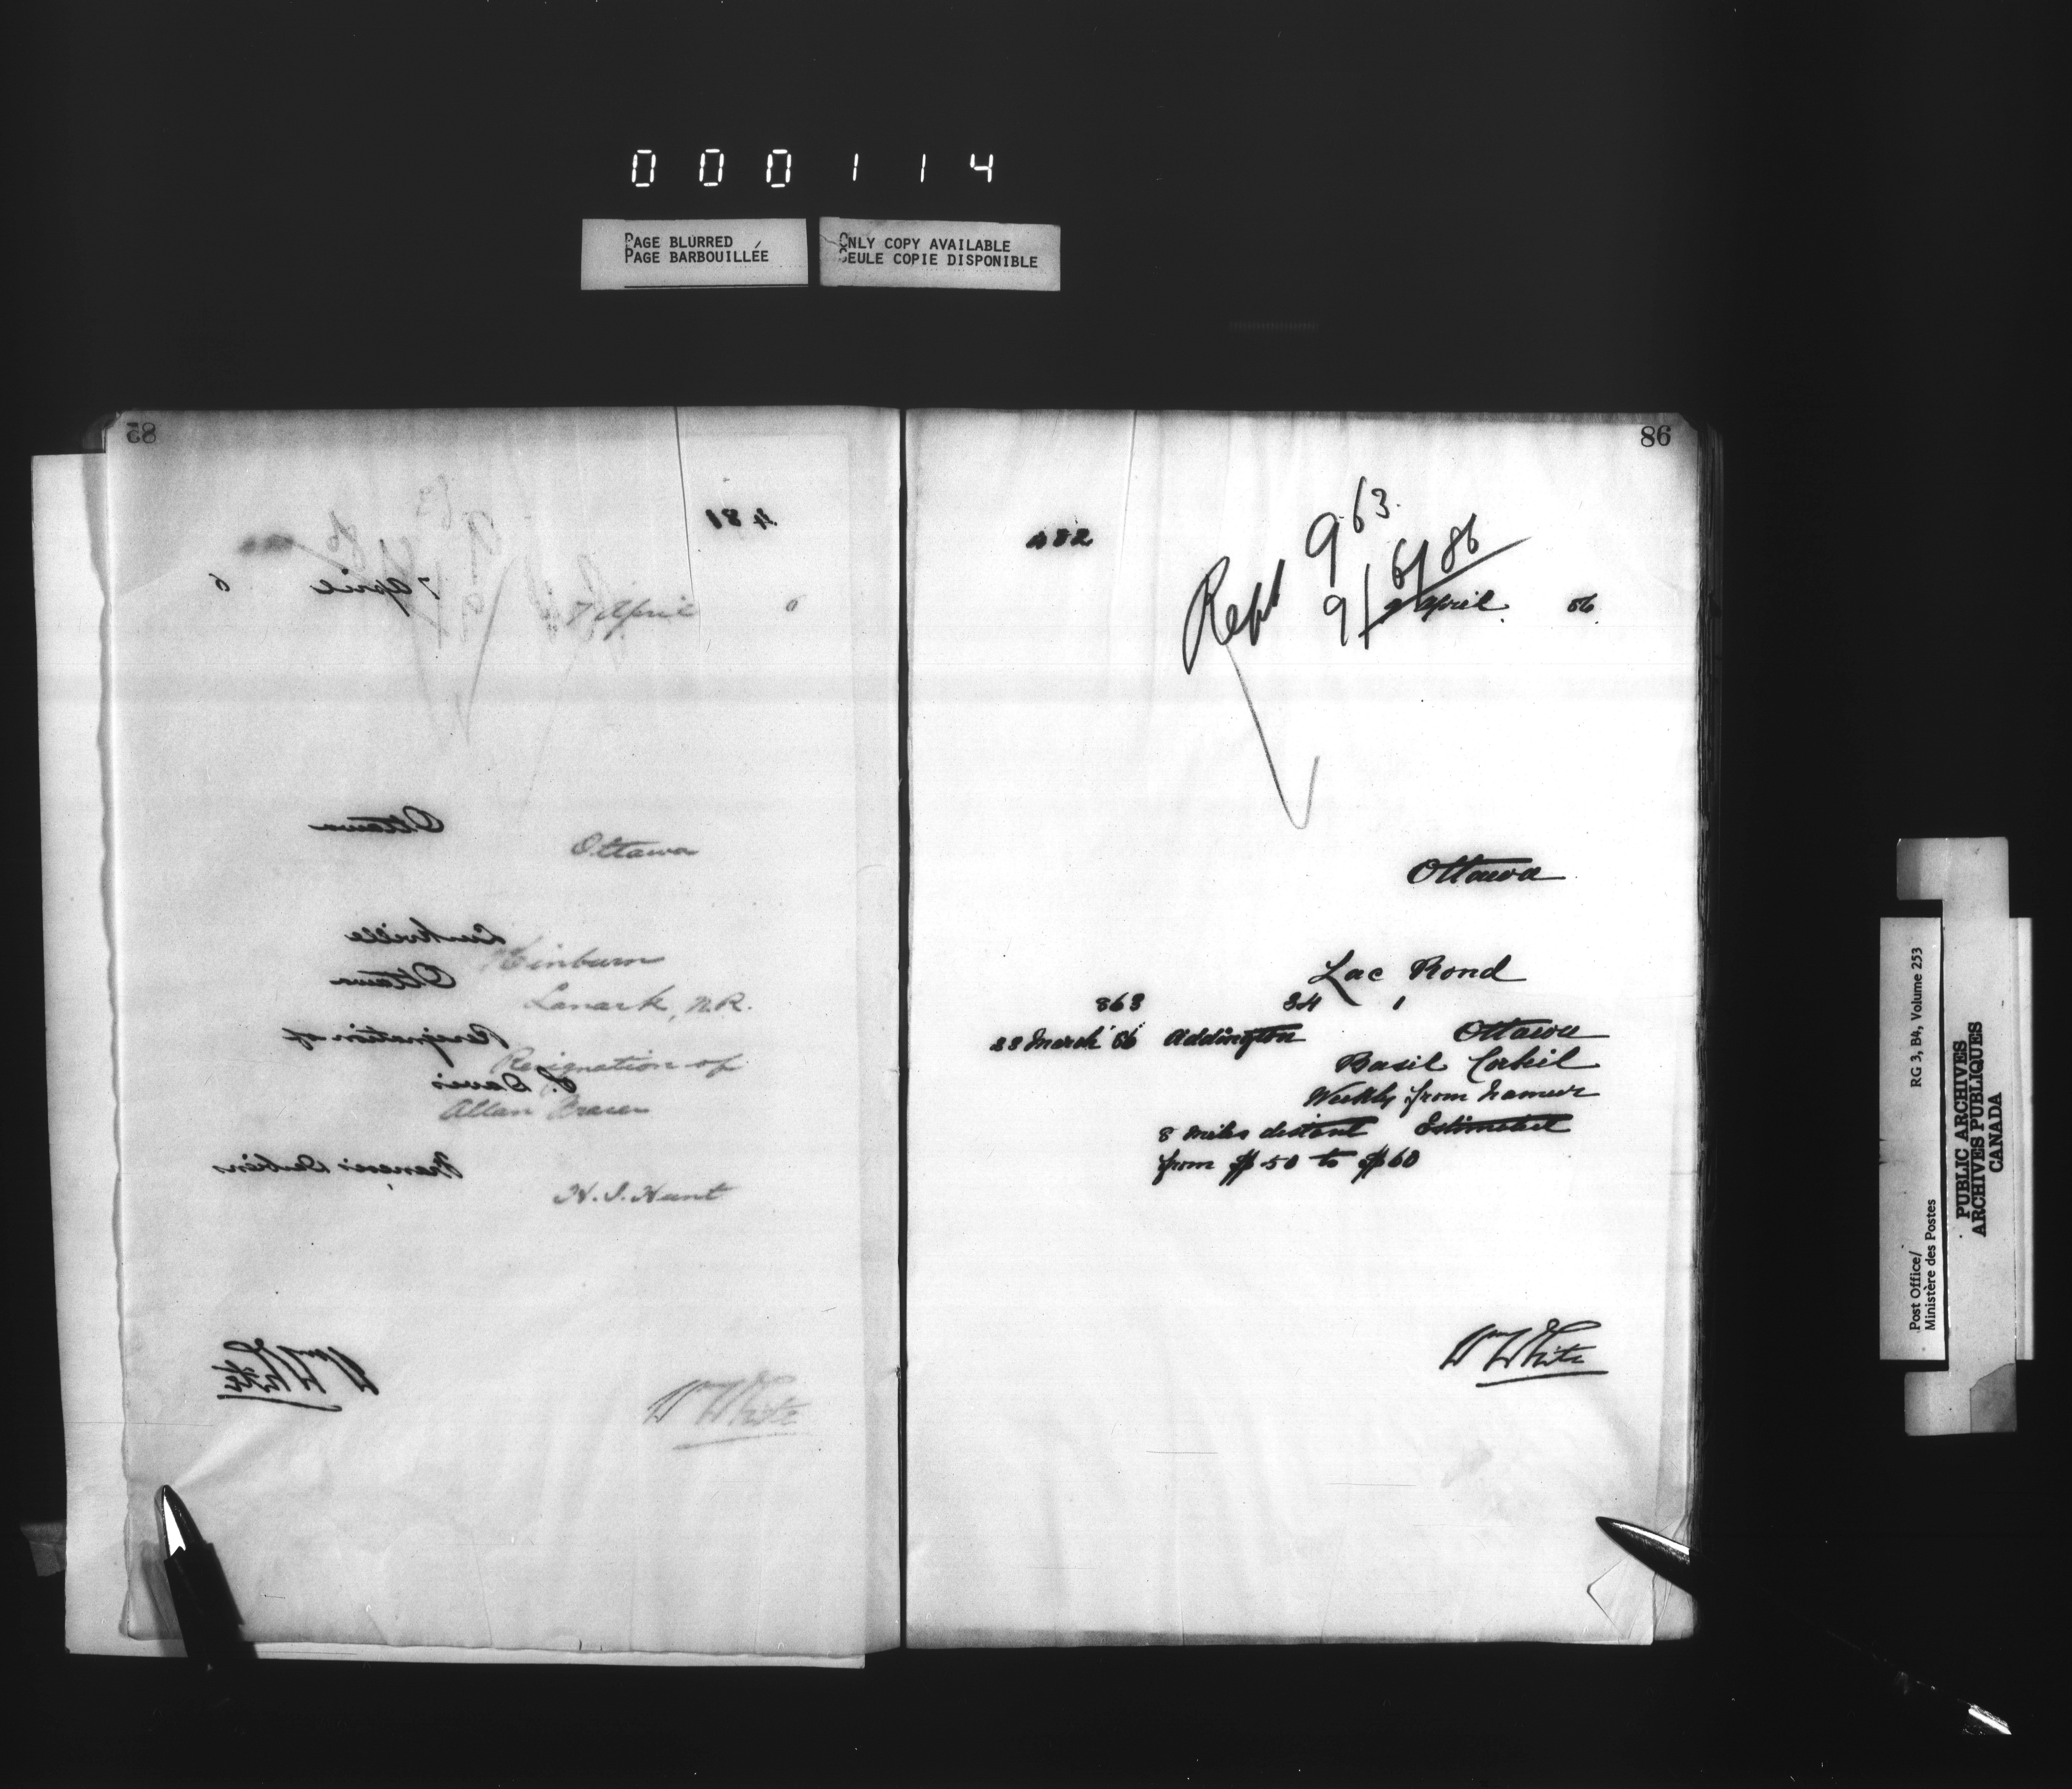 000114
PAGE BLURRED
PAGE BARBOUILLÉE
ONLY COPY AVAILABLE
SEULE COPIE DISPONIBLE
85
481
7 April 6
7 April 6
Ottawa
Ottawa
Kinburn
Ottawa
Lanark, N.R.
Resignation of
Resignation of
Davis
Allan
François
H. I. Hunt
Wm White
Wm White
86
482
963.
Rept 9/6/86
9 April 86
Ottawa
Lac Rond
863 34 1
23 March 86 Addington Ottawa
Basil Corkil
Weekly from Namur
8 miles distant Estimated
from $50 to $60
Wm White
Post Office/
Ministère des Postes
RG 3, B4, Volume 253
PUBLIC ARCHIVES
ARCHIVES PUBLIQUES
CANADA